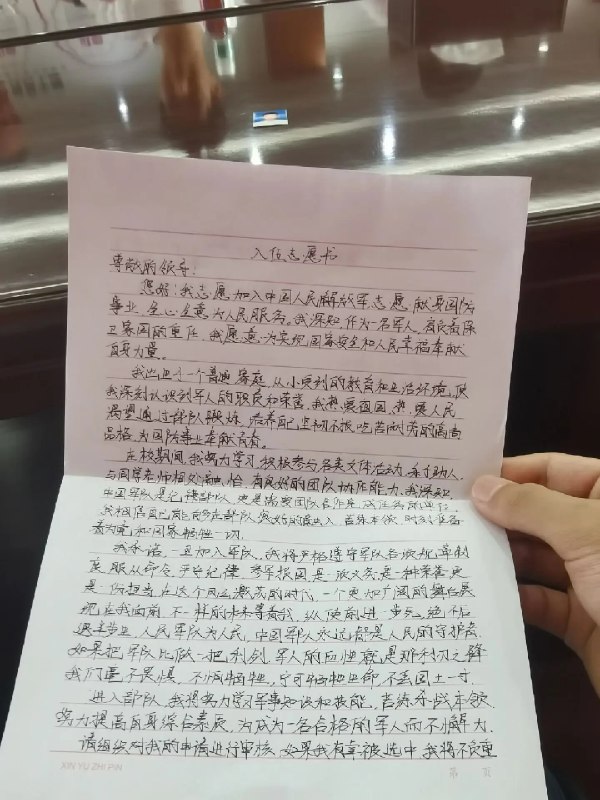 入伍志愿书
尊敬的领导：
您好！我志愿加入中国人民解放军志愿献身国防
事业，全心全意为人民服务。我深知，作为一名军人，肩负着保
卫家国的重任，我愿意为实现国家安全和人民幸福奉献
自身力量。
我出生在一个普通家庭，从小受到的教育和生活环境，使
我深刻认识到军人的职责和荣誉，我热爱祖国，热爱人民
渴望通过部队锻炼，培养自己坚韧不拔吃苦耐劳的高尚
品格，为国防事业奉献青春。
在校期间，我努力学习，积极参与各类文体活动，乐于助人，
与同学老师相处融洽，有良好的团队协作能力，我深知
中国军队是纪律部队，更是需要团队合作来完成任务的
我相信自己能够在部队更好的融入，苦练本领，时刻准备
着为党和国家牺牲一切。
我承诺，一旦加入军队，我将严格遵守军队各项规章制
度，服从命令，严守纪律，参军报国是一项义务是一种荣誉更
是一份担当在这个风云激荡的时代，一个更加广阔的舞台展
现在我面前，不一样的未来等着我，纵使前进一步死，绝不后
退半步生，人民军队为人民，中国军队永远都是人民的守护者
如果把军队比做一把利剑，军人的血性就是那利刃之锋
我们毫不畏惧，不怕牺牲，宁可牺牲生命，不丢国土一寸
进入部队，我将努力学习军事知识和技能，苦练杀战本领
努力提高自身综合素质，为成为一名合格的军人而不懈努力
请组织对我的申请进行审核，如果我有幸被选中，我将不负重
XIN YU ZHI PIN
第 页